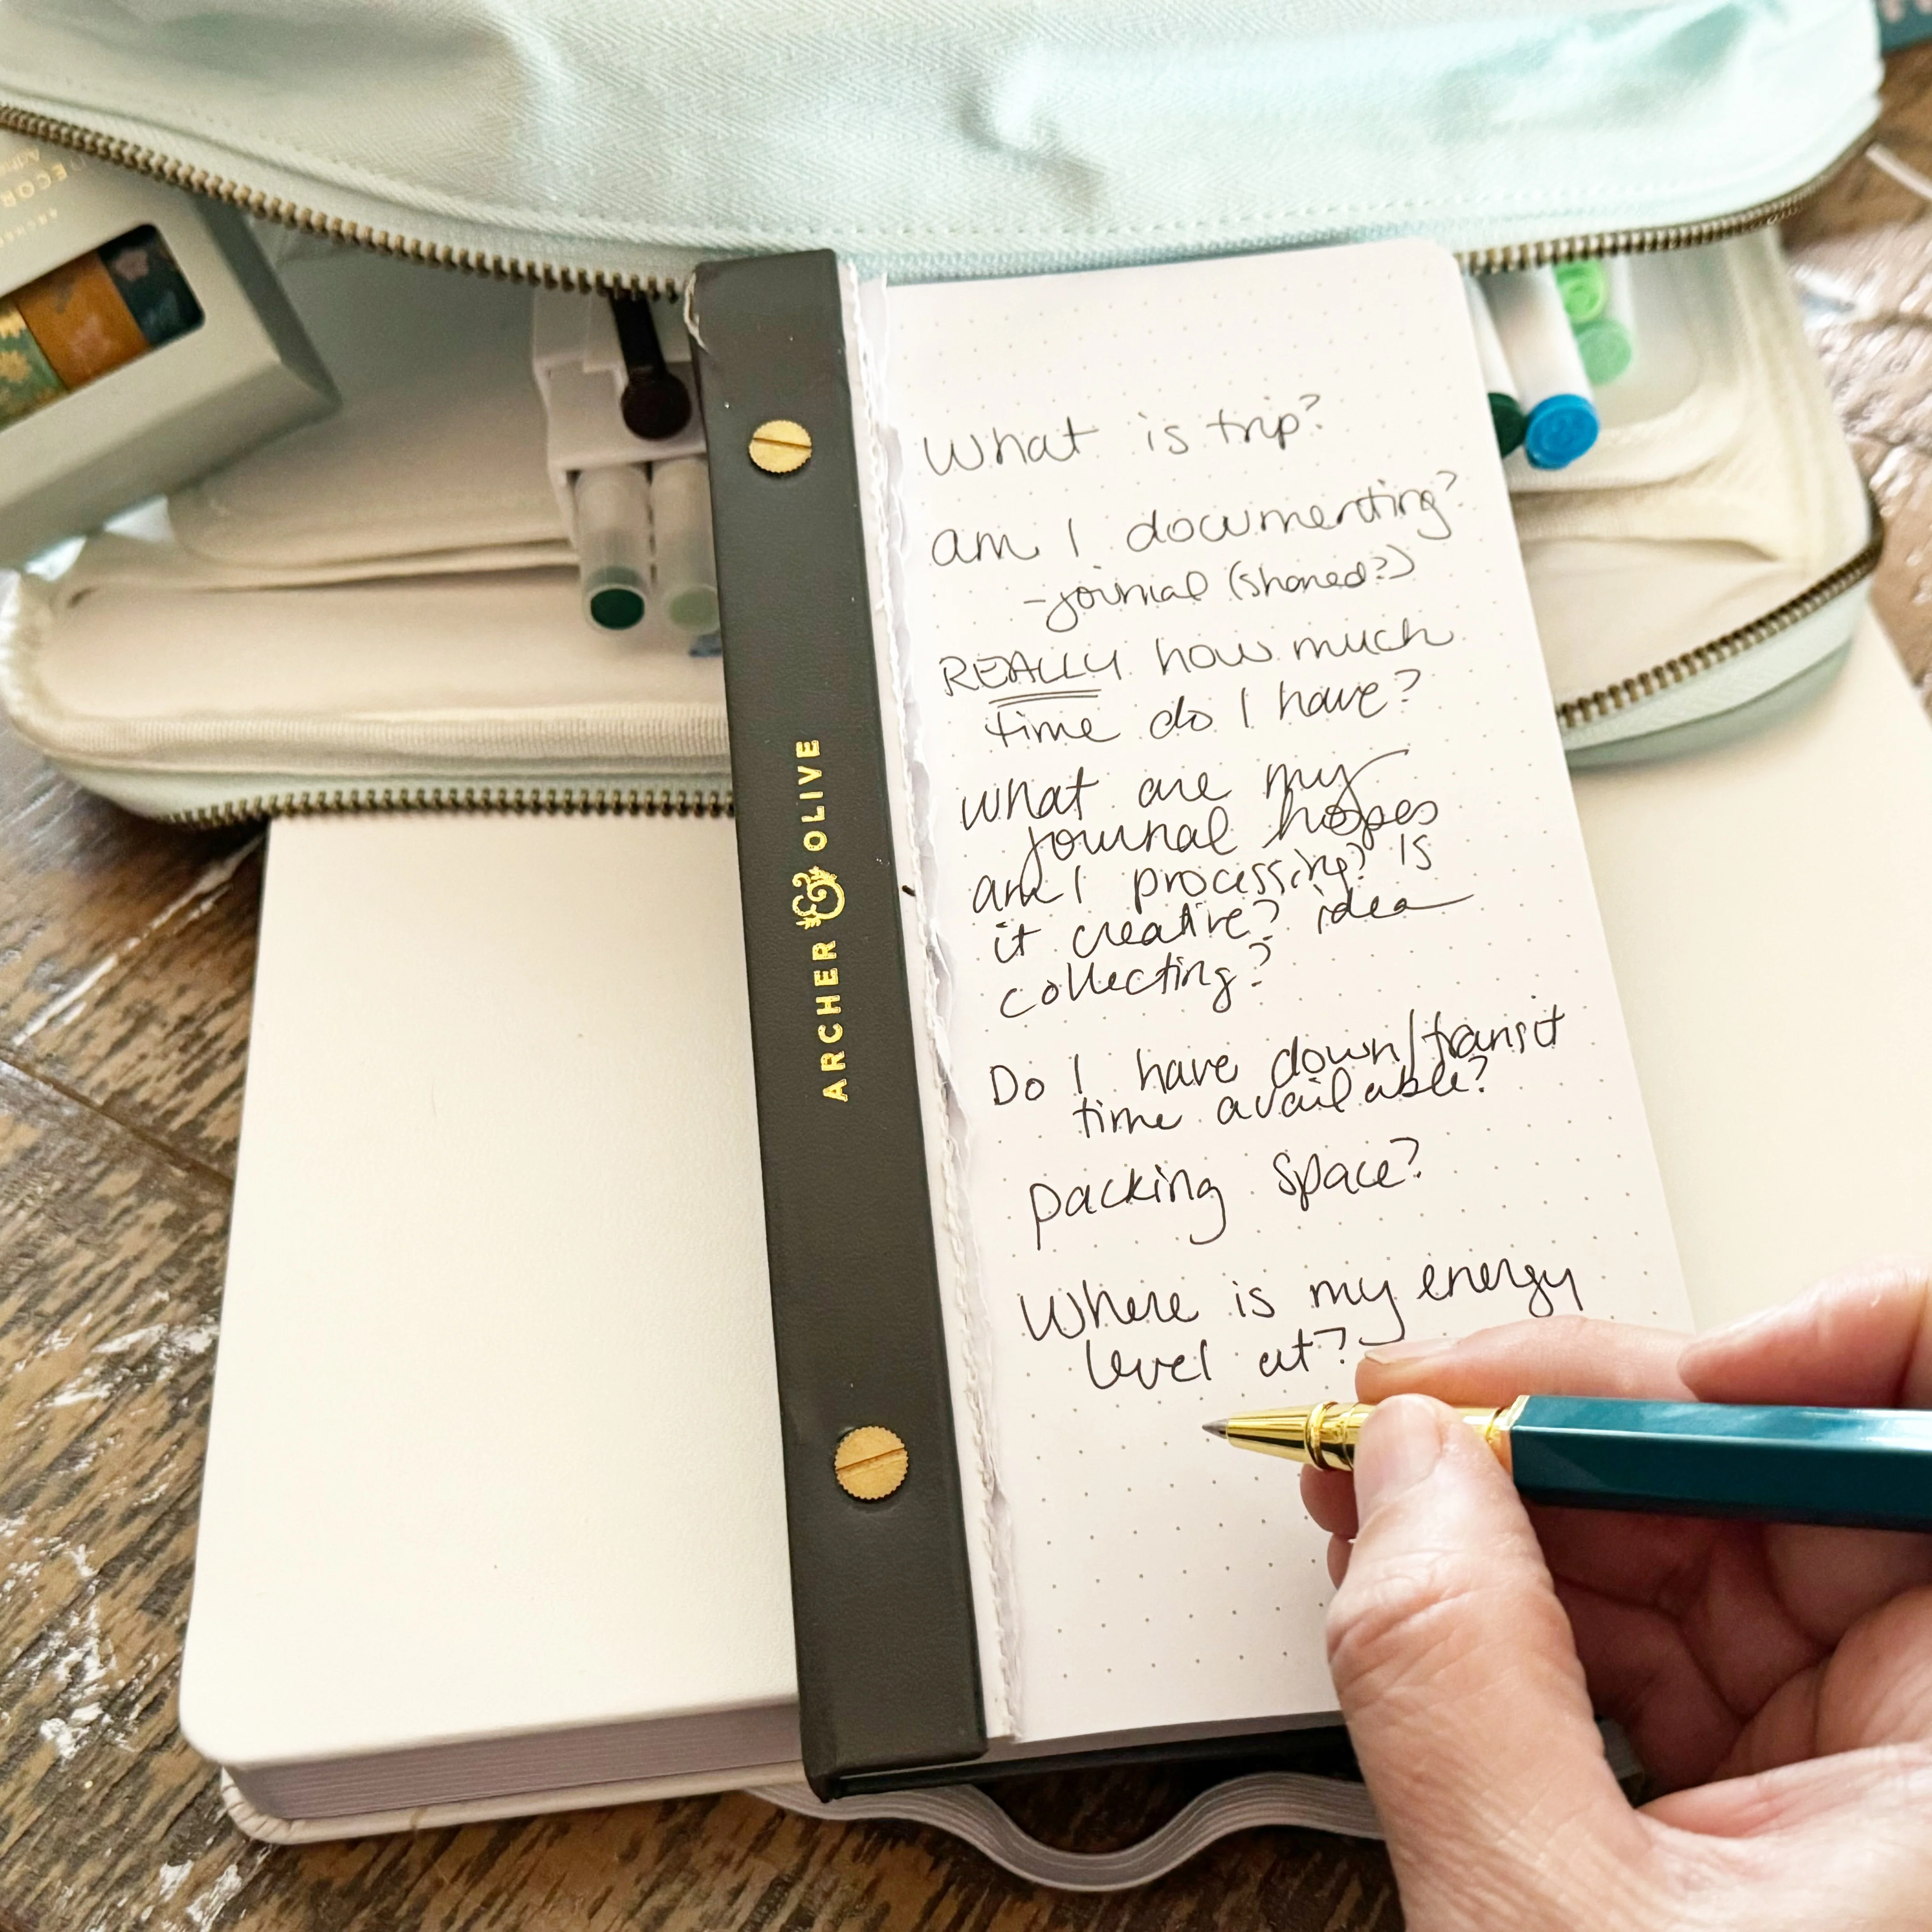 DECOR
ARCHER & OLIVE
What is trip?
am I documenting?
-journal (shared?)
REALLY how much
time do I have?
what are my
journal hopes
am I processing? Is
it creative? idea
collecting?
Do I have down/transit
time available?
packing space?
Where is my energy
level at?